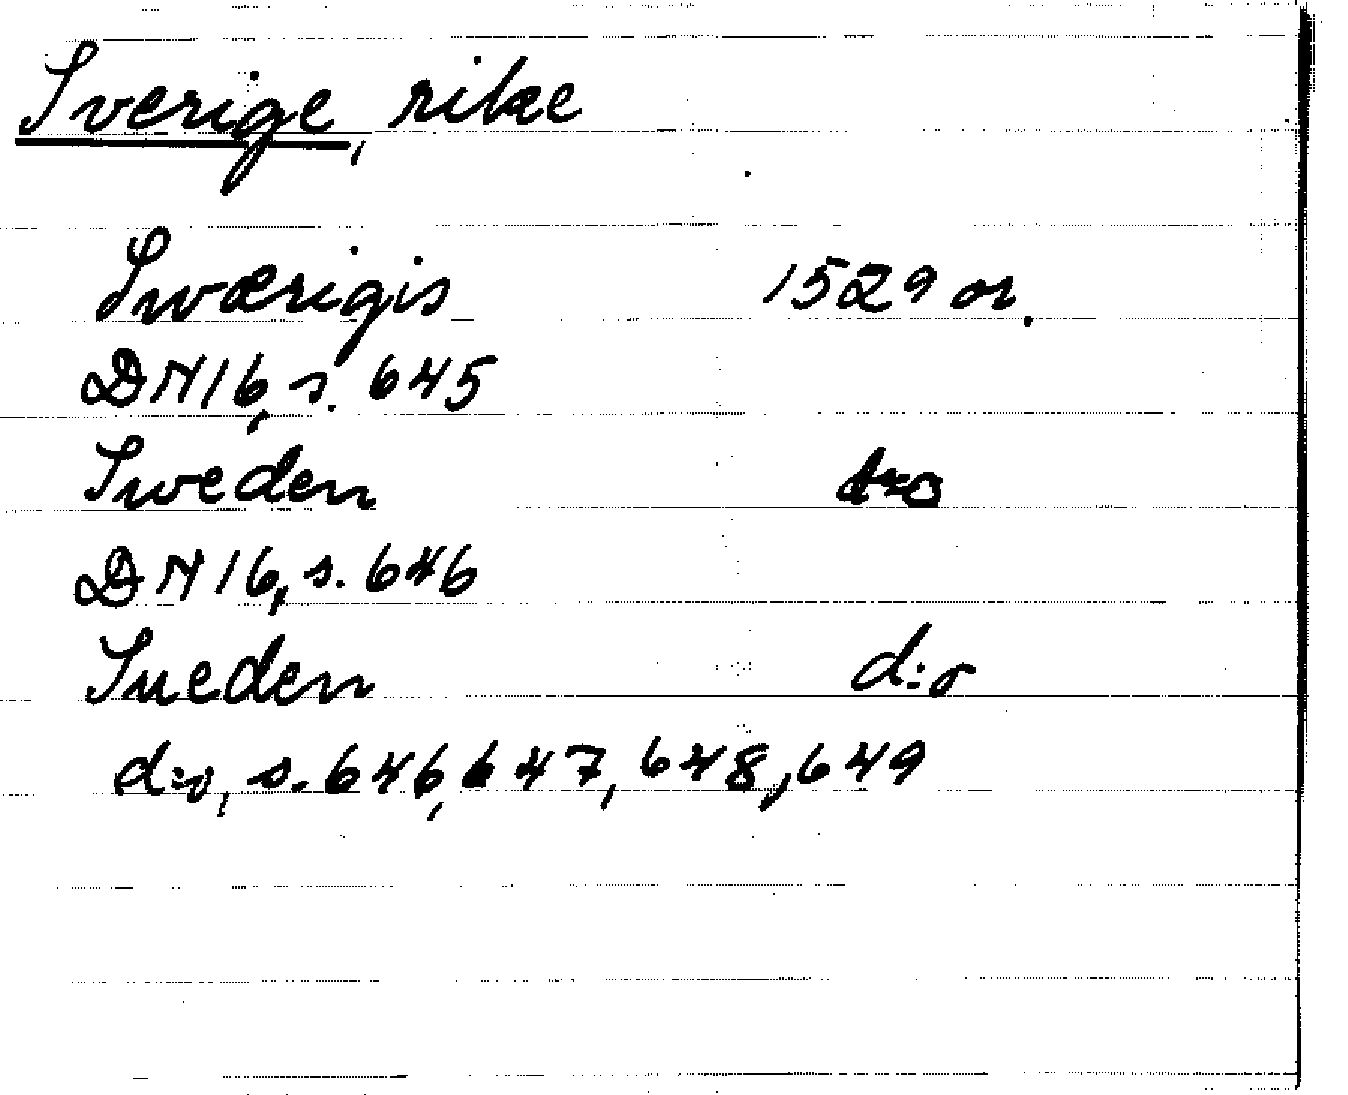 Sverige, rike
Swærigis 1529 or.
DN 16, s. 645
Sweden d:o
DN 16, s. 646
Sueden d:o
d:o, s. 646, 647, 648, 649